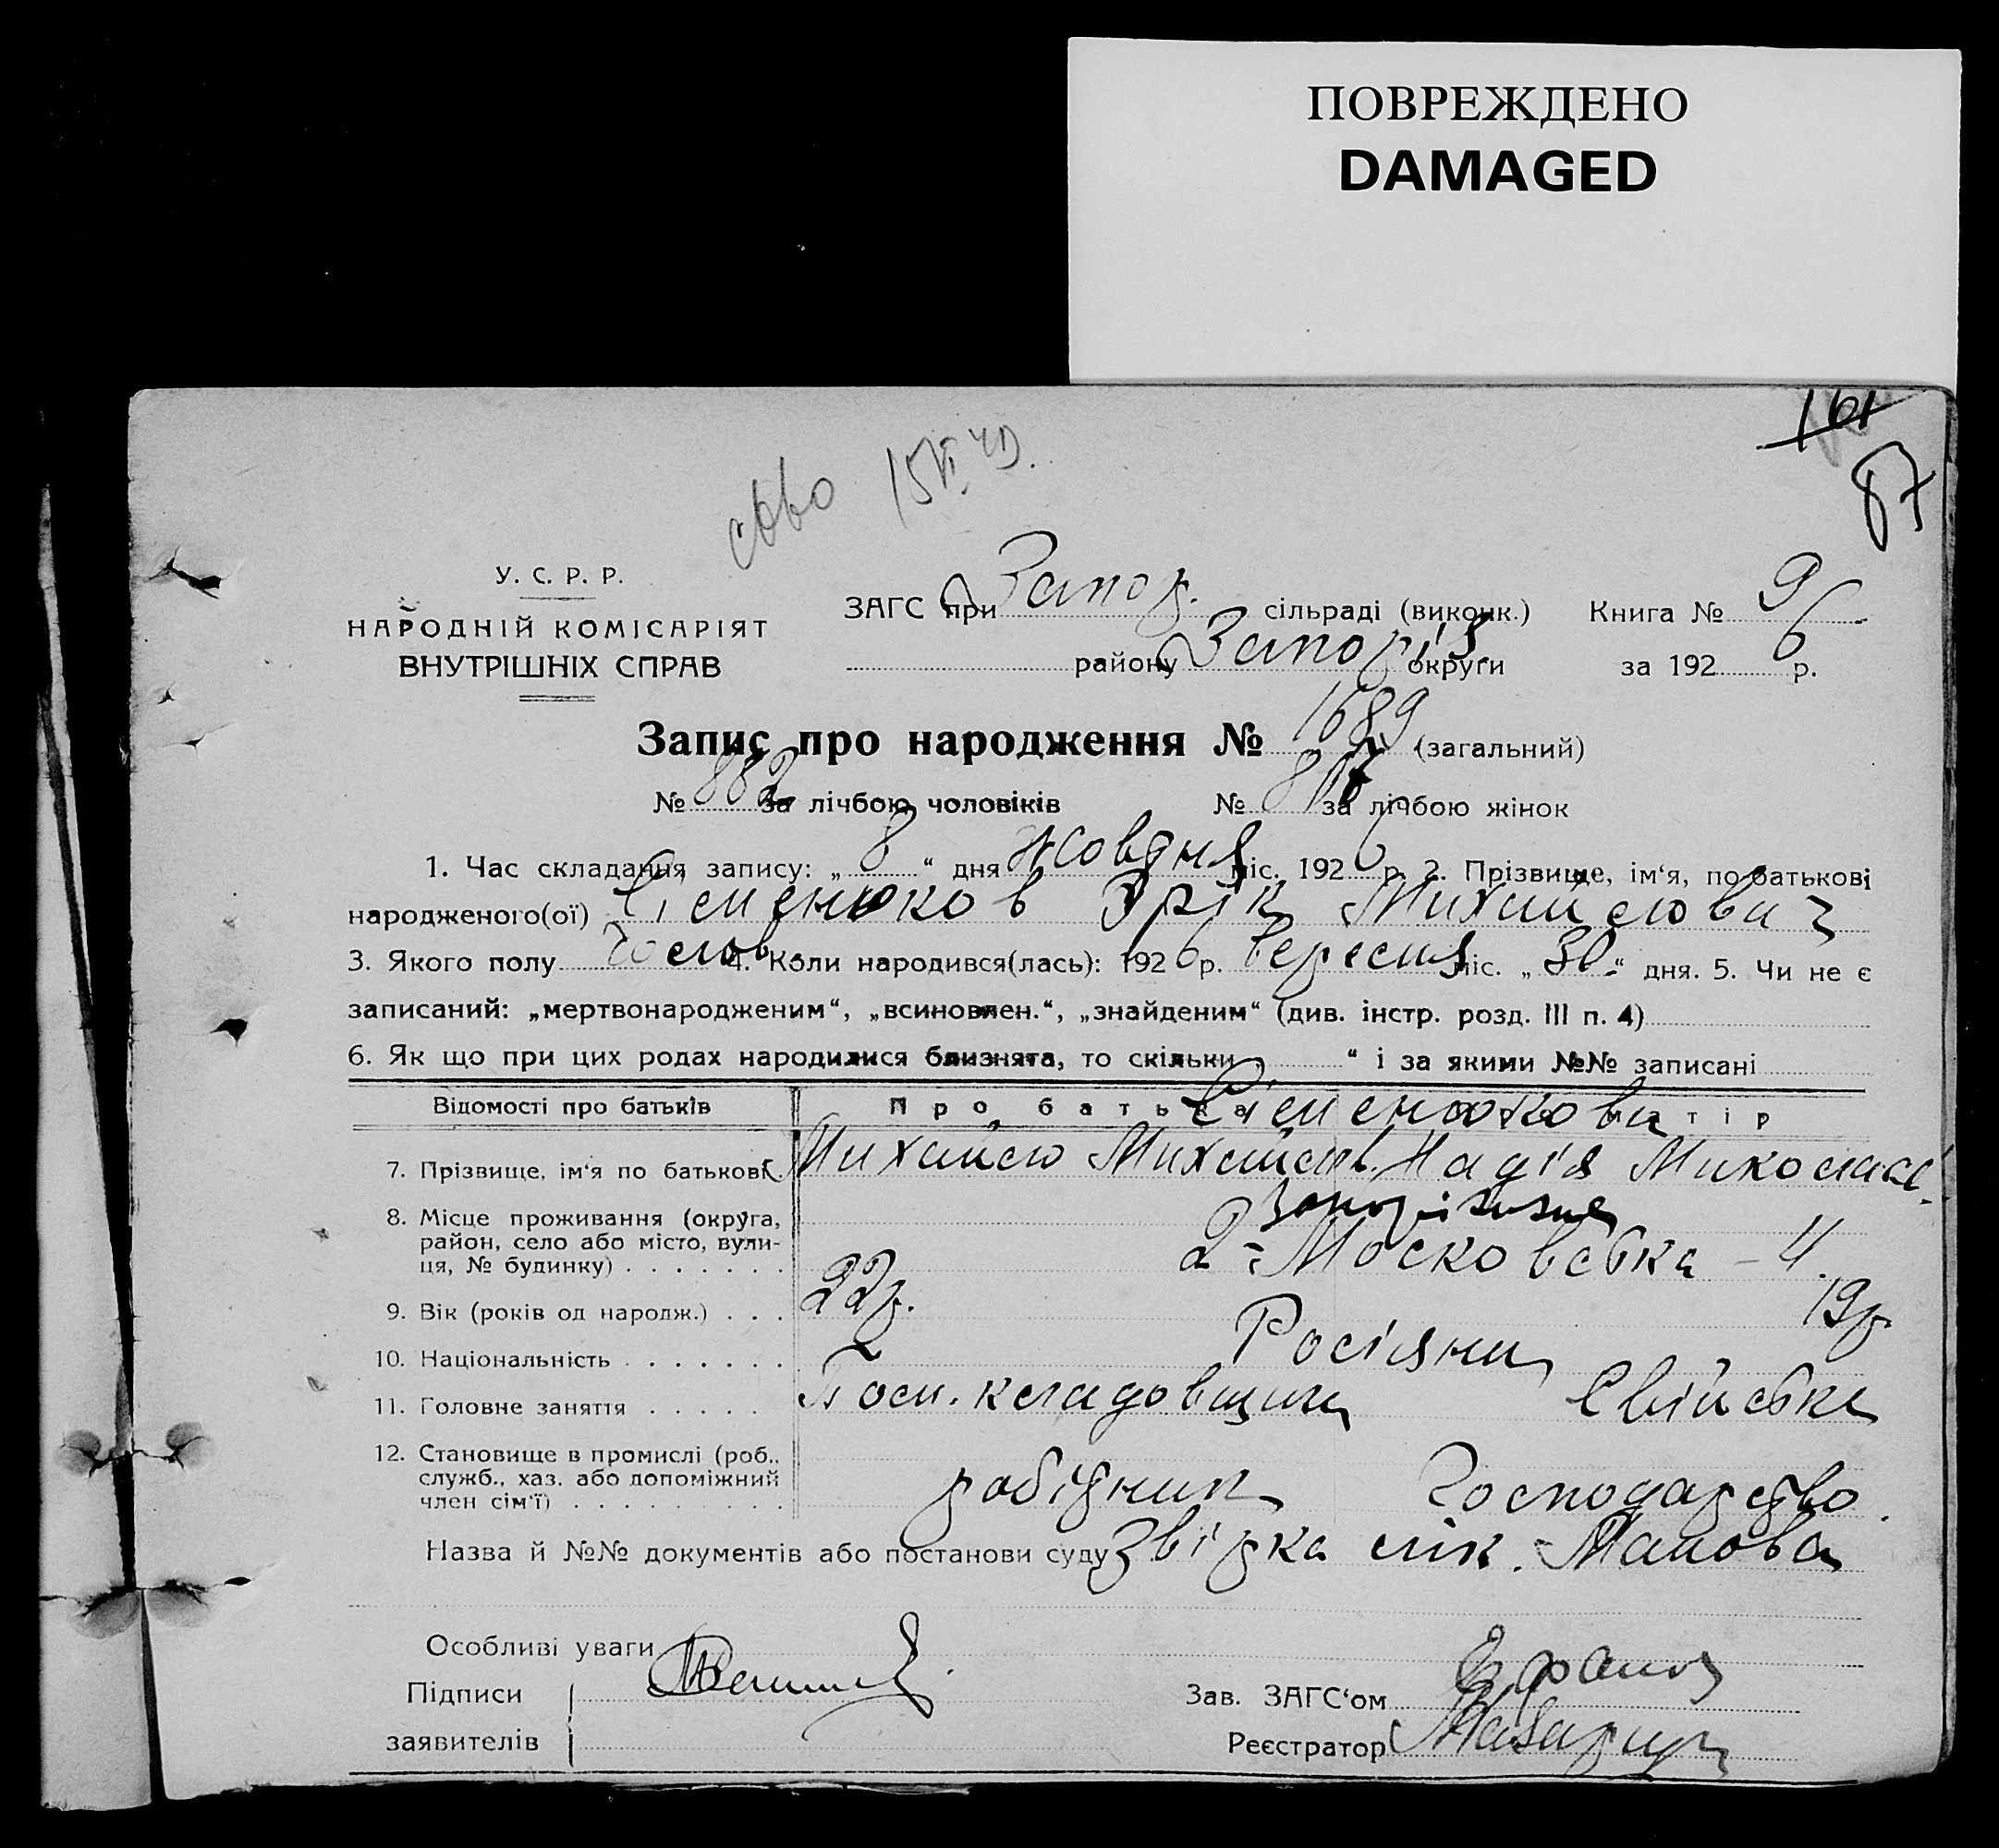 ПОВРЕЖДЕНО
DAMAGED
161
87
15 VI 40.
У. С. Р. Р.
НАРОДНІЙ КОМІСАРІЯТ
ВНУТРІШНІХ СПРАВ
ЗАГС при Запор. сільраді (виконк.) Книга № 9
району Запоріз. округи за 1926 р.
Запис про народження № 1689 (загальний)
№ 882 за лічбою чоловіків № 807 за лічбою жінок
1. Час складання запису: „8“ дня жовтня міс. 1926 р. 2. Прізвище, ім‘я, по батькові
народженого(ої) Сіменюков Ерік Михайлович
3. Якого полу Чолов. 4. Коли народився(лась): 1926 р. вересня міс. „30“ дня. 5. Чи не є
записаний: „мертвонародженим“, „всиновлен.“, „знайденим“ (див. інстр. розд. III п. 4)
6. Як що при цих родах народилися близнята, то скільки „ “ і за якими №№ записані
Відомості про батьків Про батька матір
Сіменюкови
7. Прізвище, ім‘я по батькові Михайло Михайлов. Надія Миколаєв.
8. Місце проживання (округа, Запоріжжя
район, село або місто, вули- 2-Московська - 4.
ця, № будинку)
9. Вік (років од народж.) 22р. 19р.
10. Національність Росіяни
11. Головне заняття Пом. кладовщик Свійське
12. Становище в промислі (роб.,
служб., хаз. або допоміжний робітник Господарство.
член сім‘ї)
Назва й №№ документів або постанови суду Звірка лік.
Особливі уваги
Підписи
заявителів
Зав. ЗАГС‘ом
Реєстратор